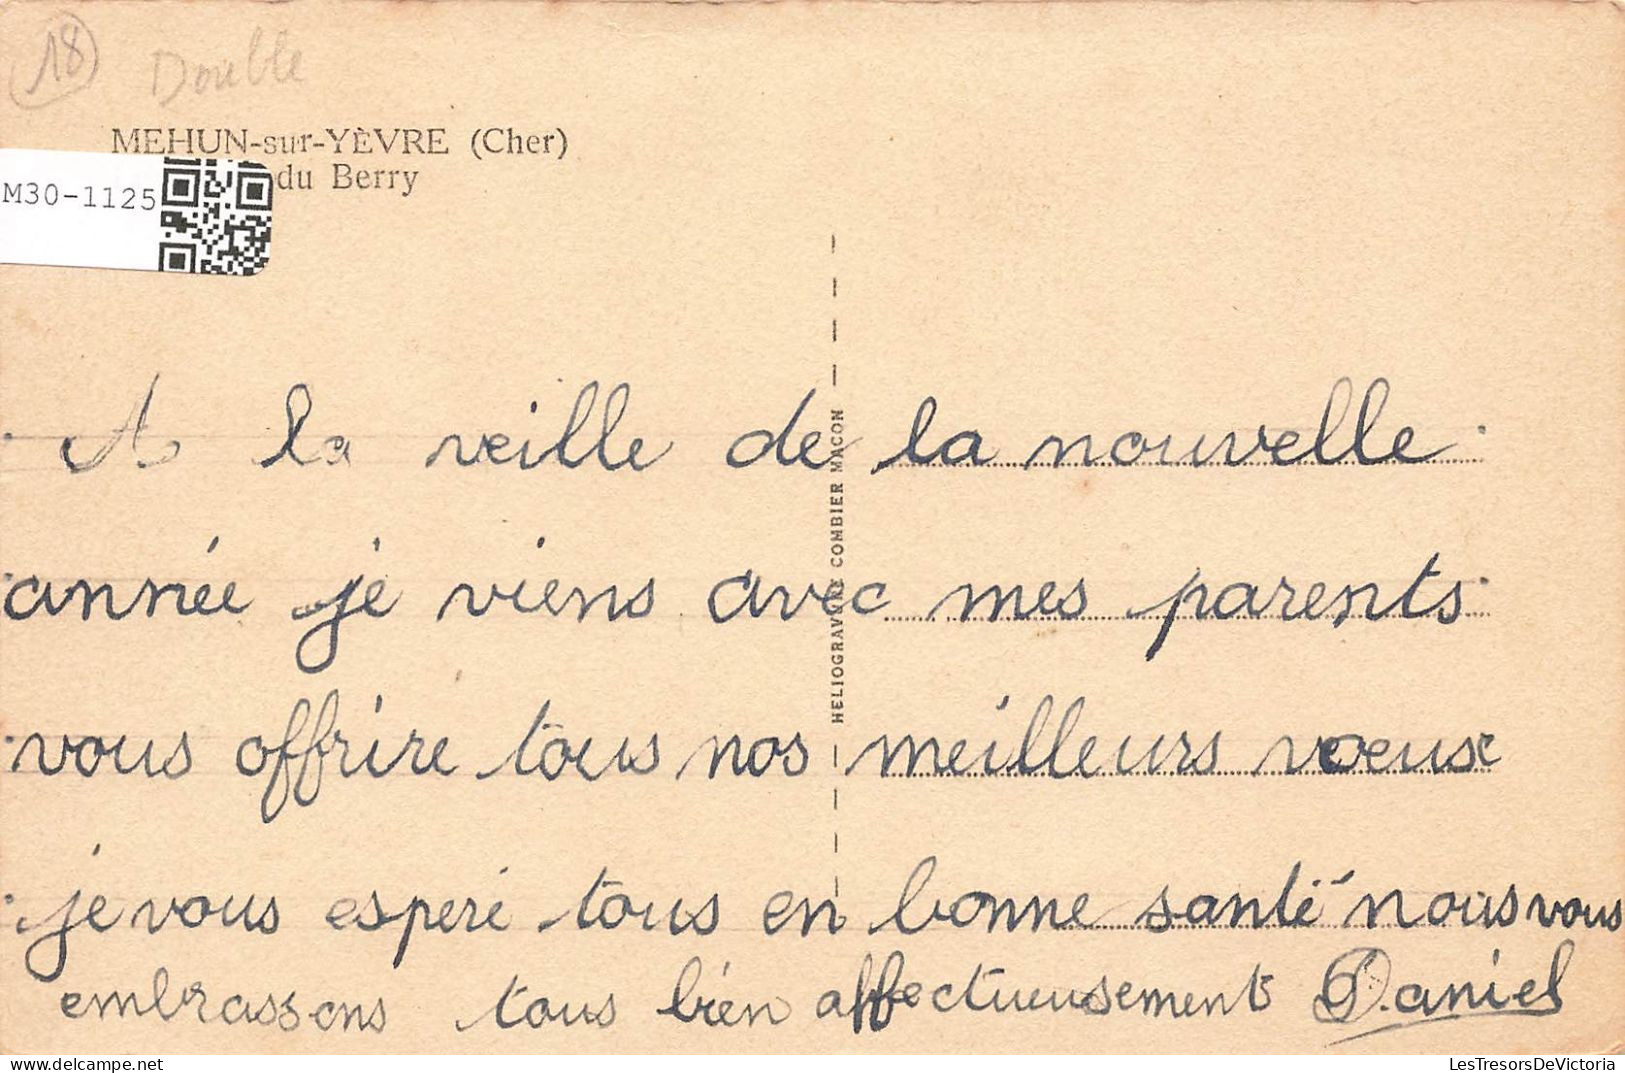 18 Double
MEHUN-sur-YÈVRE (Cher)
du Berry
M30-1125
HELIOGRAVURE COMBIER MACON
A la veille de la nouvelle
année je viens avec mes parents
vous offrire tous nos meilleurs voeux
je vous esperé tous en bonne santé nous vous
embrassons tous bien affectueusements Daniel
LesTresorsDeVictoria